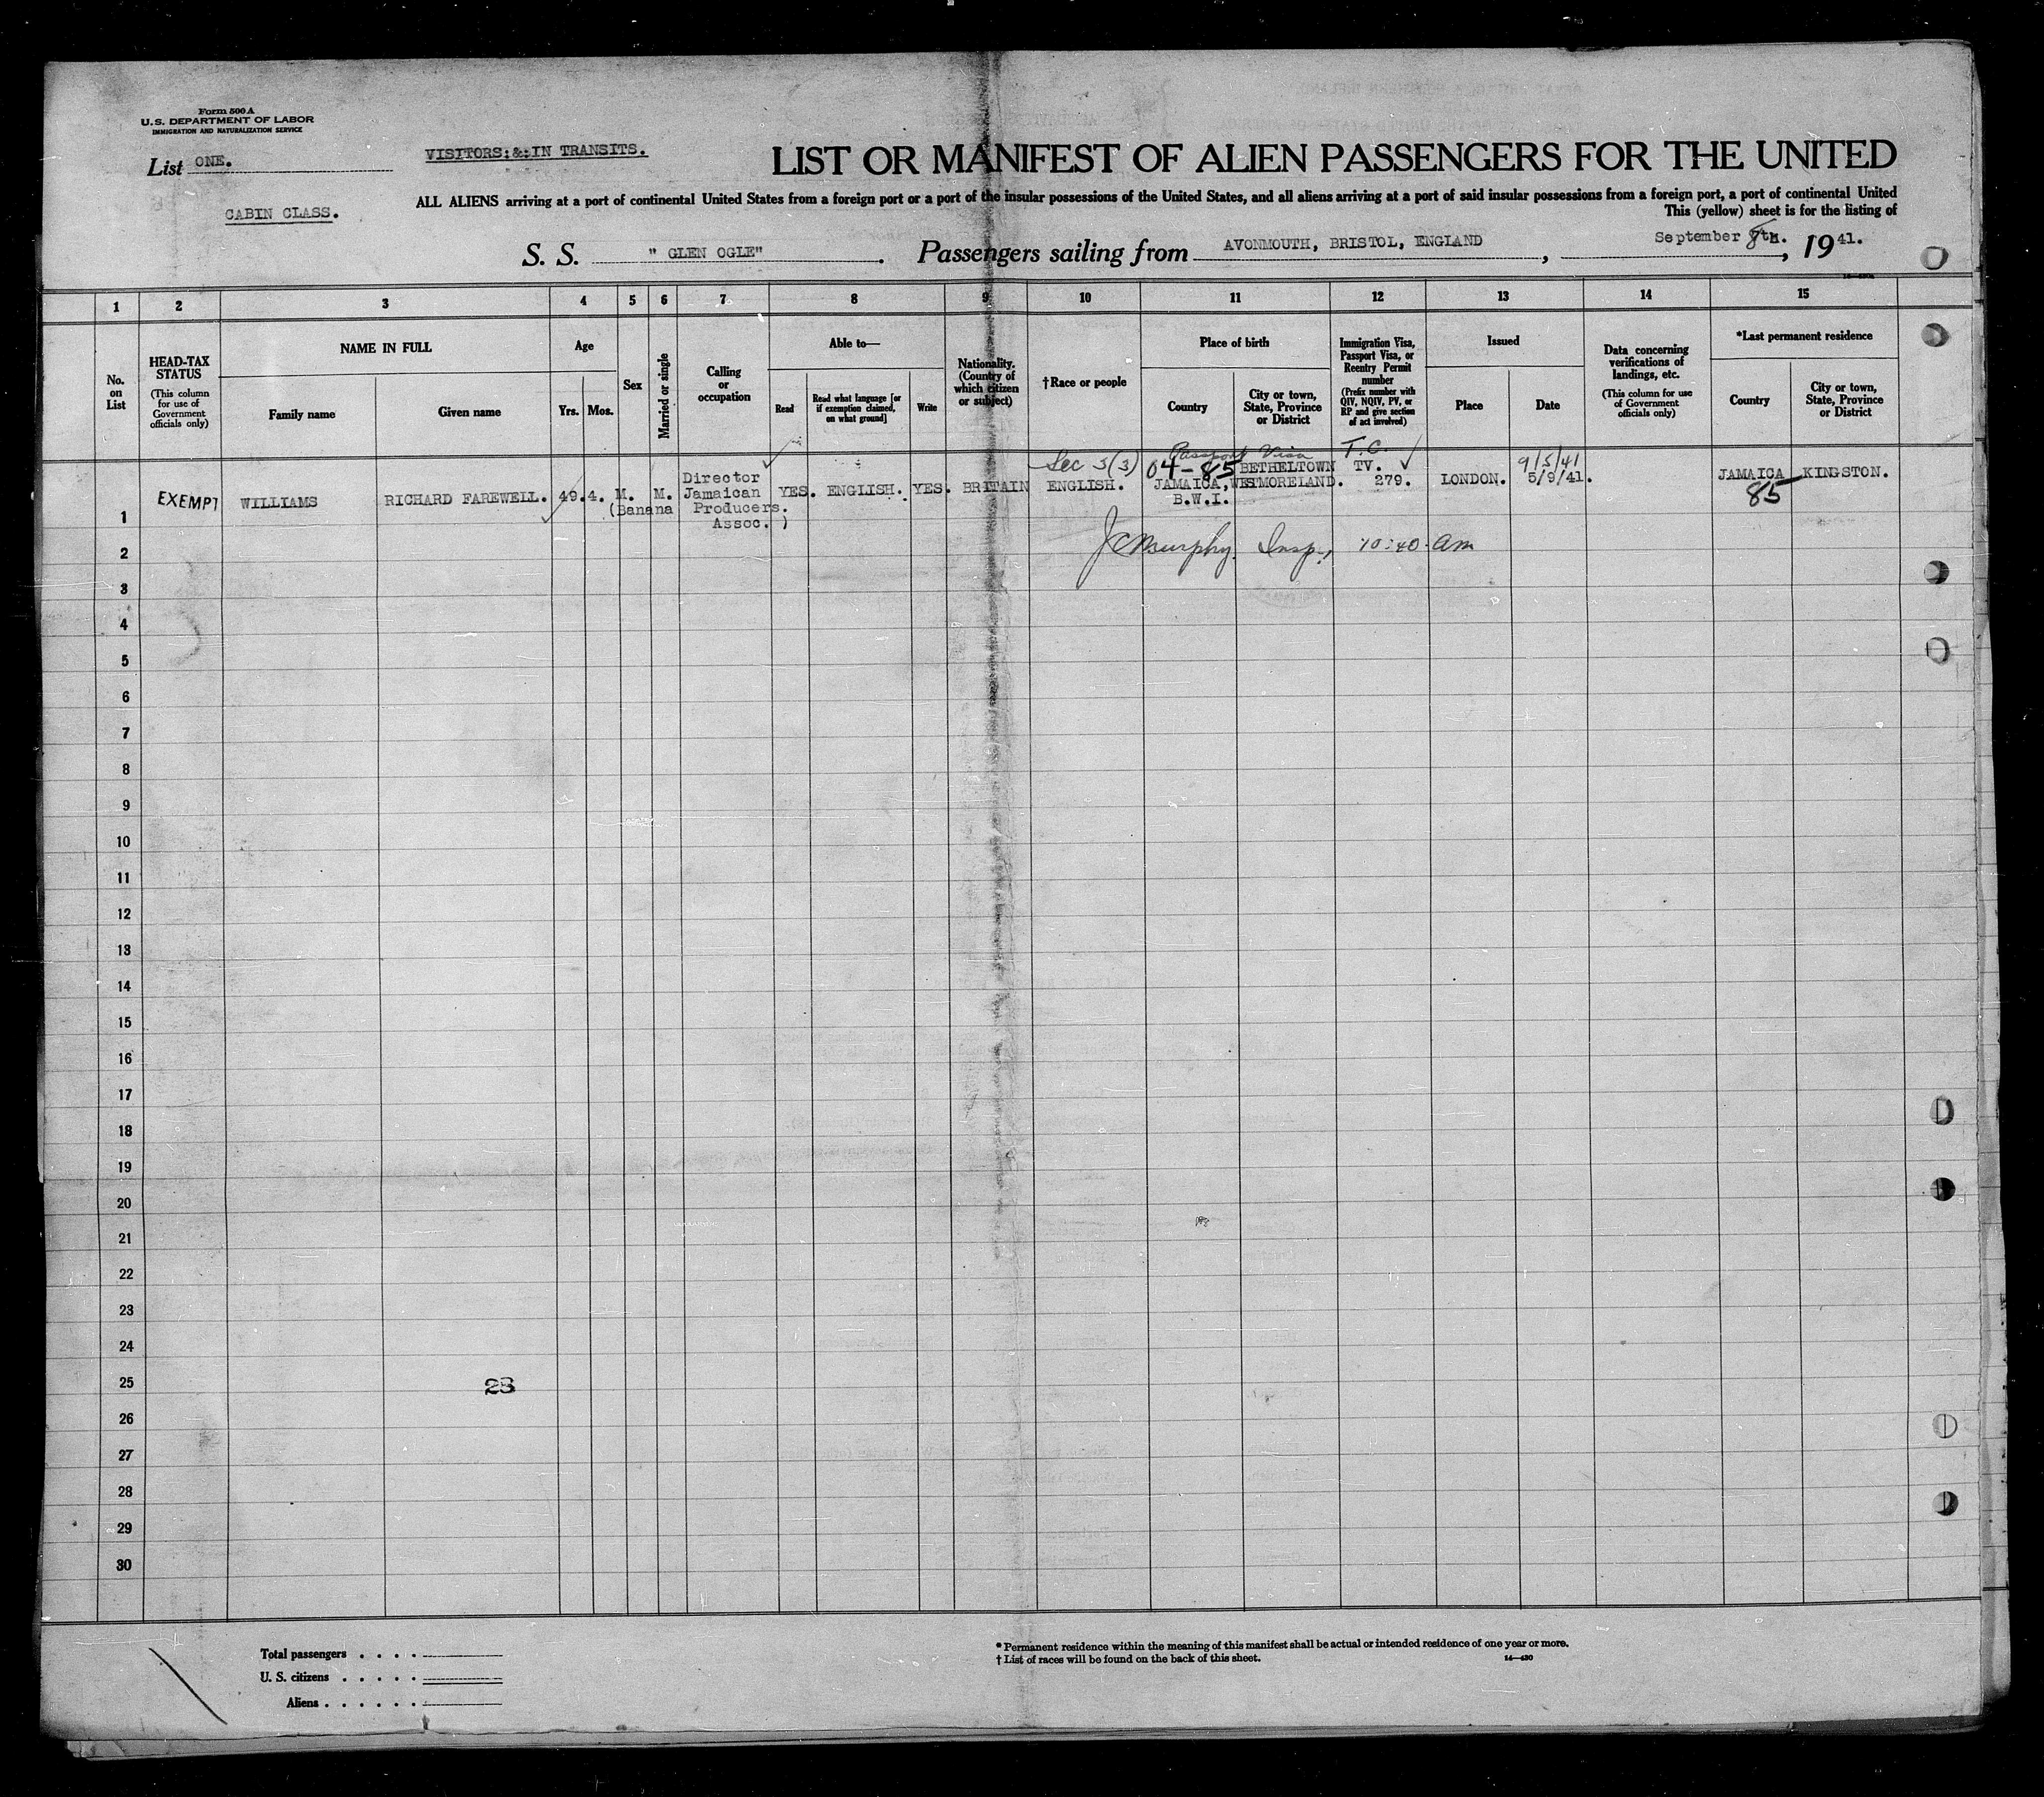 Form 500 A
U.S. DEPARTMENT OF LABOR
IMMIGRATION AND NATURALIZATION SERVICE
List ONE.
VISITORS:&:IN TRANSITS.
LIST OR MANIFEST OF ALIEN PASSENGERS FOR THE UNITED
CABIN CLASS.
ALL ALIENS arriving at a port of continental United States from a foreign port or a port of the insular possessions of the United States, and all aliens arriving at a port of said insular possessions from a foreign port, a port of continental United
This (yellow) sheet is for the listing of
S. S. " GLEN OGLE" . Passengers sailing from AVONMOUTH, BRISTOL, ENGLAND , September 8th. , 19 41.
1 2 3 4 5 6 7 8 9 10 11 12 13 14 15
No. on List
HEAD-TAX STATUS
(This column for use of Government officials only)
NAME IN FULL
Family name
Given name
Age
Yrs.
Mos.
Sex
Married or single
Calling or occupation
Able to—
Read
Read what language [or if exemption claimed, on what ground]
Write
Nationality. (Country of which citizen or subject)
†Race or people
Place of birth
Country
City or town, State, Province or District
Immigration Visa, Passport Visa, or Reentry Permit number
(Prefix number with QIV, NQIV, PV, or RP and give section of act involved)
Issued
Place
Date
Data concerning verifications of landings, etc.
(This column for use of Government officials only)
*Last permanent residence
Country
City or town, State, Province or District
Sec 3(3) Passport Visa T.C.
04-85 BETHELTOWN TV. 9/5/41
EXEMPT WILLIAMS RICHARD FAREWELL. 49. 4. M. M. Director Jamaican (Banana Producers. Assoc. ) YES. ENGLISH. YES. BRITAIN ENGLISH. JAMAICA, B.W.I. WESTMORELAND. 279. LONDON. 5/9/41. JAMAICA KINGSTON.
85
1
JC Murphy. Insp., 10:40 am
2
3
4
5
6
7
8
9
10
11
12
13
14
15
16
17
18
19
20
21
22
23
24
25
28
26
27
28
29
30
Total passengers . . . .
U. S. citizens . . . . .
Aliens . . . . . .
* Permanent residence within the meaning of this manifest shall be actual or intended residence of one year or more.
† List of races will be found on the back of this sheet.